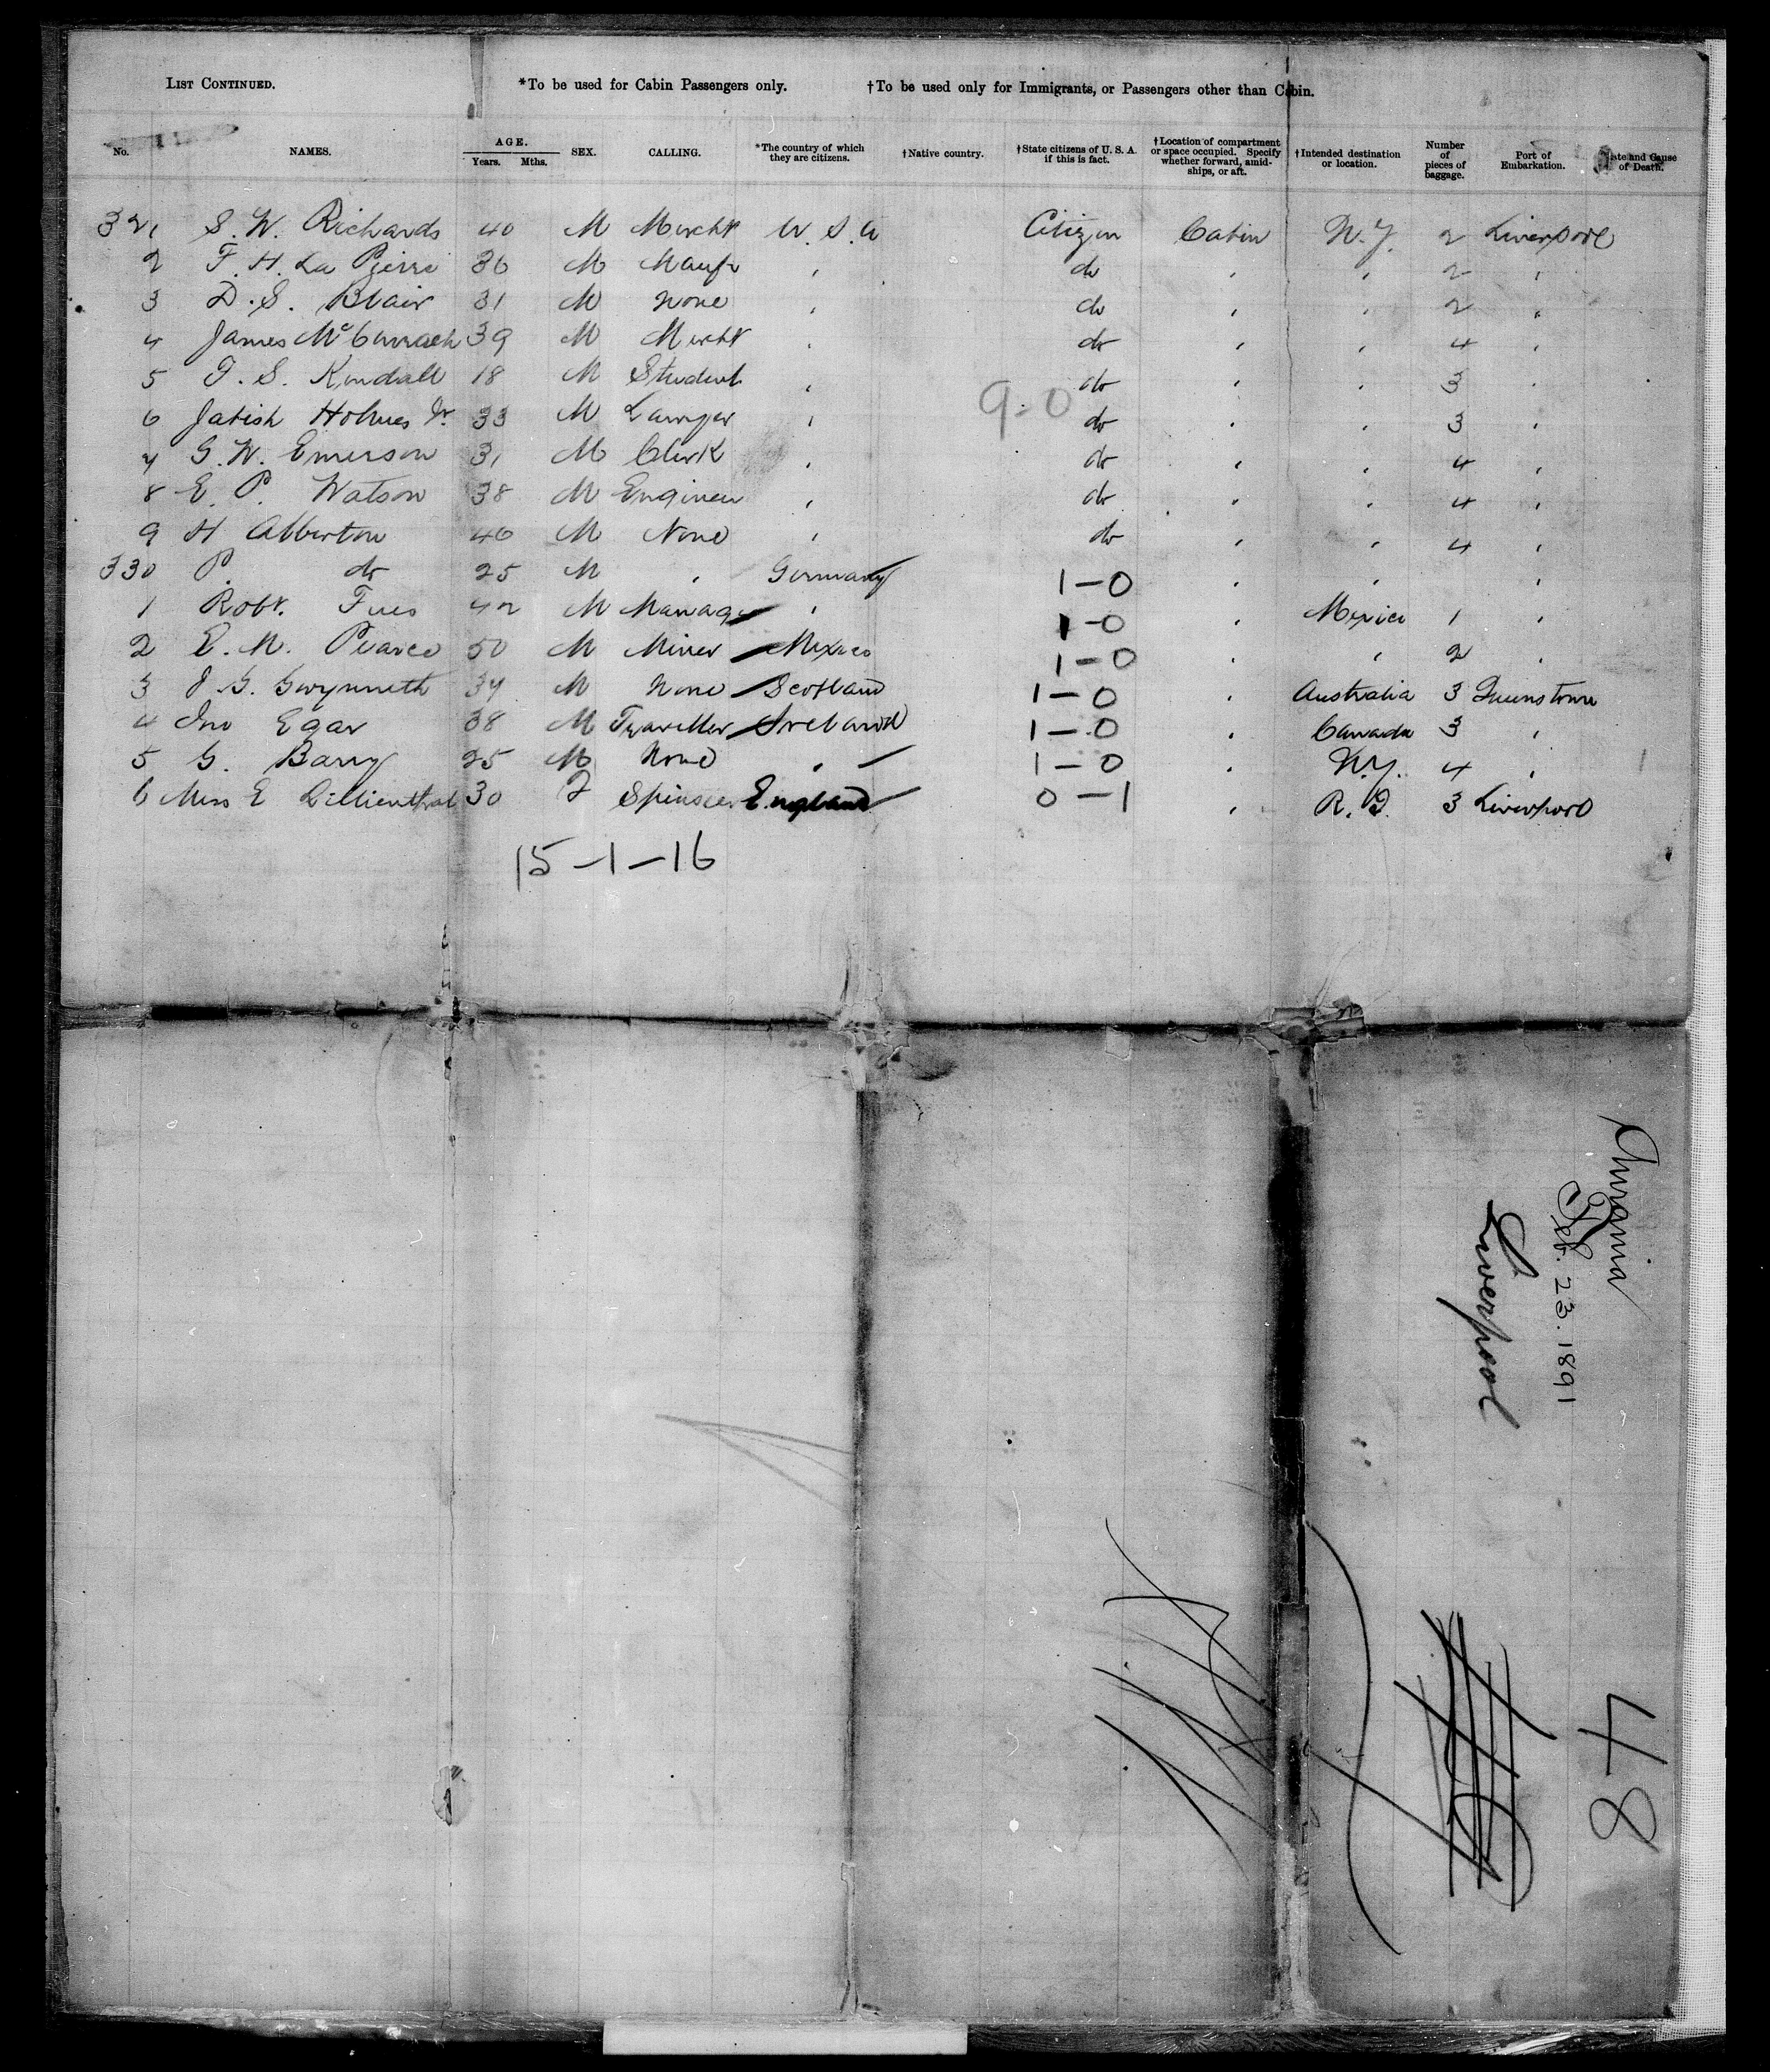 LIST CONTINUED. *To be used for Cabin Passengers only. †To be used only for Immigrants, or Passengers other than Cabin.
No. NAMES. AGE. Years. Mths. SEX. CALLING. *The country of which they are citizens. †Native country. †State citizens of U. S. A. if this is fact. †Location of compartment or space occupied. Specify whether forward, amidships, or aft. †Intended destination or location. Number of pieces of baggage. Port of Embarkation. Date and Cause of Death.
321 S. W. Richards 40 M Mercht U. S. A Citizen Cabin N. Y. 2 Liverpool
2 F. H. La Pierre 36 M Manfr " do " " 2 "
3 D. S. Blair 31 M None " do " " 2 "
4 James McCurrach 39 M Mercht " do " " 4 "
5 F. S. Kendall 18 M Student " do " " 3 "
9-0
6 Jabish Holmes Jr. 33 M Lawyer " do " " 3 "
7 G. W. Emerson 31 M Clerk " do " " 4 "
8 E. P. Watson 38 M Engineer " do " " 4 "
9 H Alberton 40 M None " do " " 4 "
330 P. do 25 M " Germany 1-0 " " "
1 Robt. 42 M Manager " 1-0 " Mexico 1 "
2 E. M. Pearce 50 M Miner Mexico 1-0 " " 2 "
3 J G. Gwynneth 34 M None Scotland 1-0 " Australia 3 Queenstown
4 Jno Egar 38 M Traveller Ireland 1-0 " Canada 3 "
5 G. Barry 25 M None " 1-0 " N.Y. 4 "
6 Miss E Lillienthal 30 F Spinster England 0-1 " R. I. 3 Liverpool
15-1-16
Aurania
Feb. 23. 1891
Liverpool
48